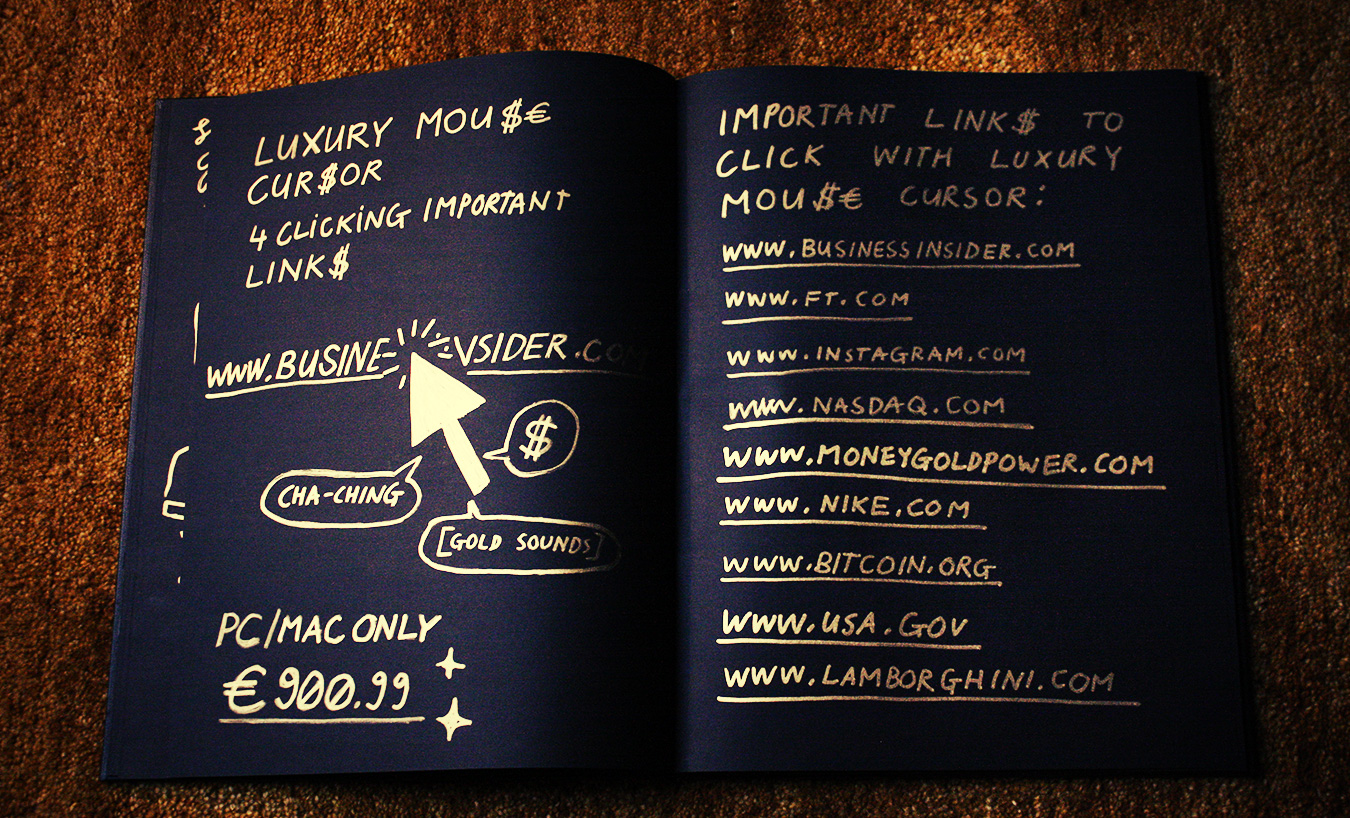 LUXURY MOU$€
CUR$OR
4 CLiCKiNG IMPORTANT
LINK$
www.BUSINE
NSIDER.COM
$
CHA-CHING
[GOLD SOUNDS]
PC/MAC ONLY
€900.99
IMPORTANT LINK$ TO
CLICK WITH LUXURY
MOU$€ CURSOR:
www.BUSINESSINSIDER.COM
www.FT.COM
www.INSTAGRAM.COM
www.NASDAQ.COM
www.MONEYGOLDPOWER.COM
www.NIKE.COM
www.BITCOIN.ORG
www.USA.GOV
www.LAMBORGHINI.COM